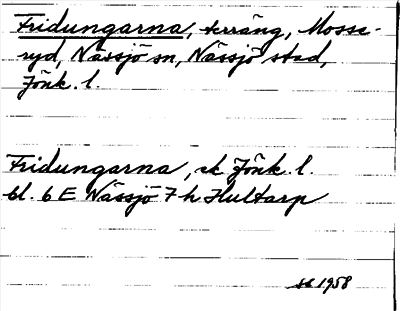 Fridungarna, terräng, Mosse-
ryd, Nässjö sn, Nässjö stad,
Jönk. l.
Fridungarna, ek Jönk. l.
bl. 6 E Nässjö 7 h Hultarp
1958